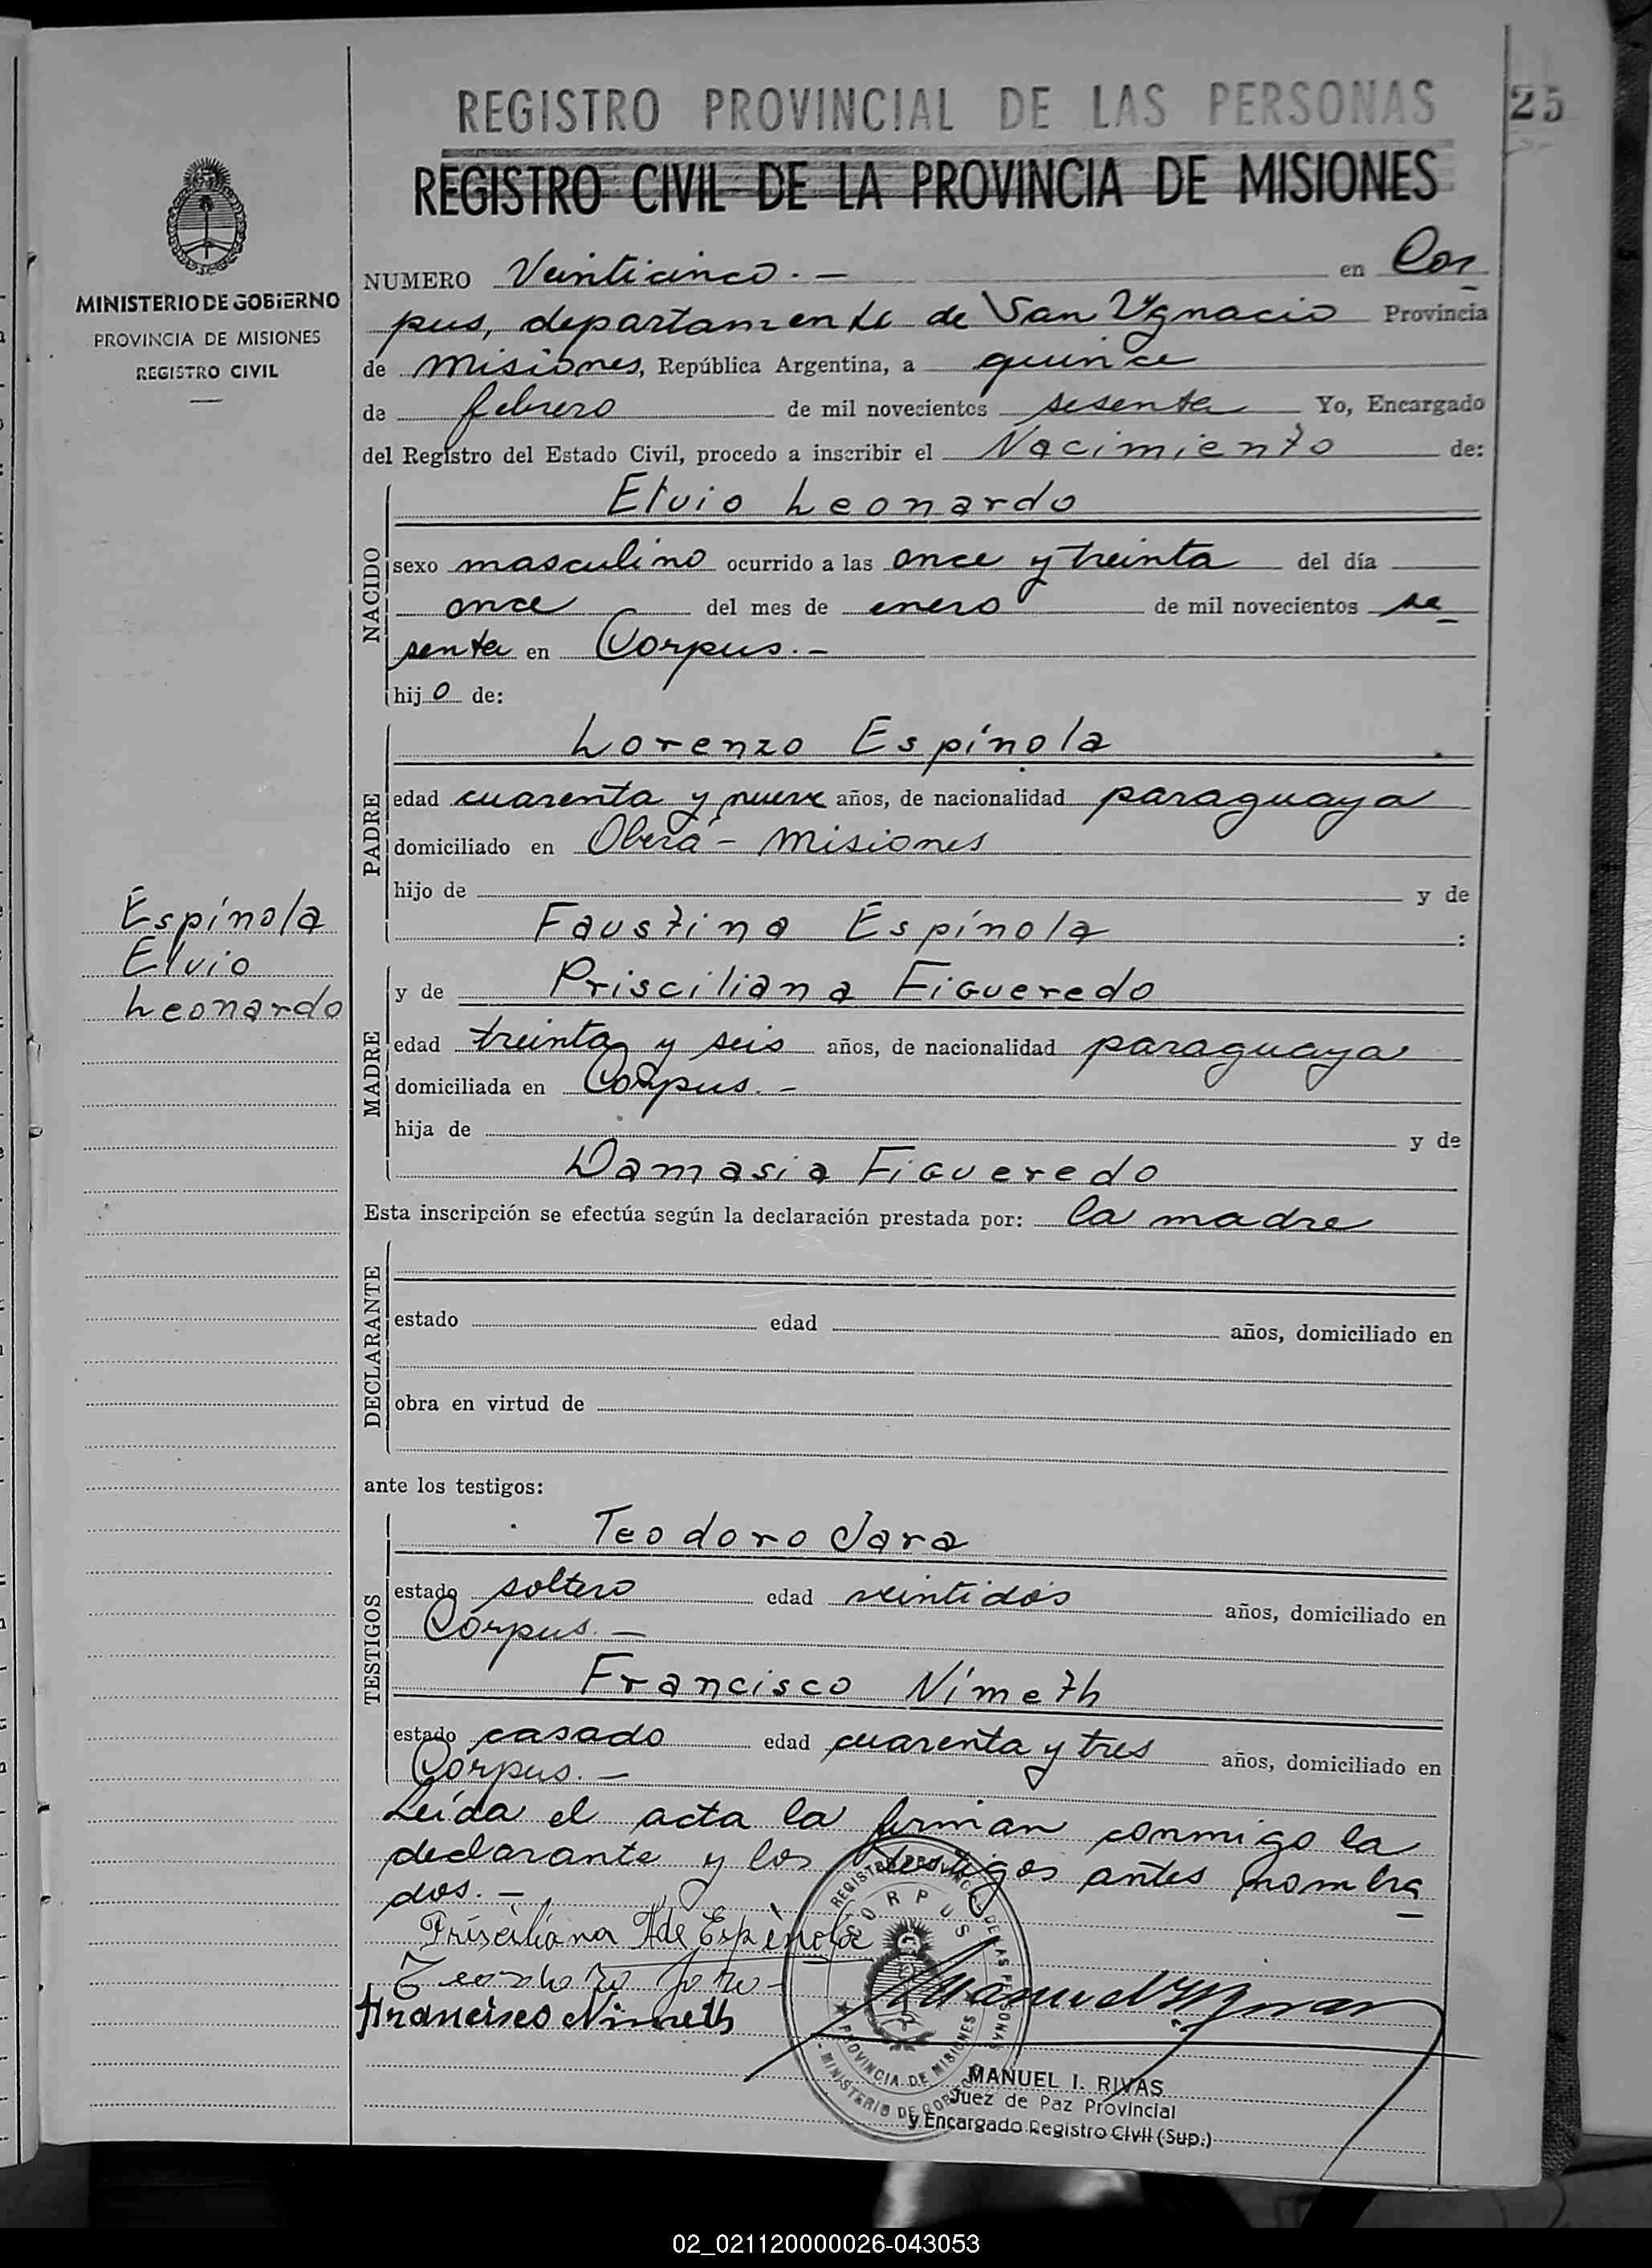 REGISTRO PROVINCIAL DE LAS PERSONAS
25
REGISTRO CIVIL DE LA PROVINCIA DE MISIONES
MINISTERIO DE GOBIERNO
PROVINCIA DE MISIONES
REGISTRO CIVIL
NUMERO Veinticinco.- en Cor
pus, departamento de San Ygnacio Provincia
de misiones, República Argentina, a quince
de febrero de mil novecientos sesenta Yo, Encargado
del Registro del Estado Civil, procedo a inscribir el Nacimiento de:
NACIDO
Elvio Leonardo
sexo masculino ocurrido a las once y treinta del día
once del mes de enero de mil novecientos se
senta en Corpus.-
hijo de:
PADRE
Lorenzo Espínola
edad cuarenta y nueve años, de nacionalidad paraguaya
domiciliado en Oberá - misiones
hijo de y de
Faustina Espínola :
Espínola
Elvio
Leonardo
MADRE
y de Prisciliana Figueredo
edad treinta y seis años, de nacionalidad paraguaya
domiciliada en Corpus.-
hija de y de
Damasia Figueredo
Esta inscripción se efectúa según la declaración prestada por: la madre
DECLARANTE
estado edad años, domiciliado en
obra en virtud de
ante los testigos:
TESTIGOS
Teodoro Jara
estado soltero edad veintidós años, domiciliado en
Corpus.-
Francisco Nimeth
estado casado edad cuarenta y tres años, domiciliado en
Corpus.-
Leída el acta la firman conmigo la
declarante y los testigos antes nombra
dos.-
Prisciliana de Espínola
Teodoro Jara
Francisco Nimeth
REGISTRO PROVINCIAL DE LAS PERSONAS
CORPUS
PROVINCIA DE MISIONES
MINISTERIO DE GOBIERNO
MANUEL I. RIVAS
Juez de Paz Provincial
y Encargado Registro Civil (Sup.)
02_021120000026-043053